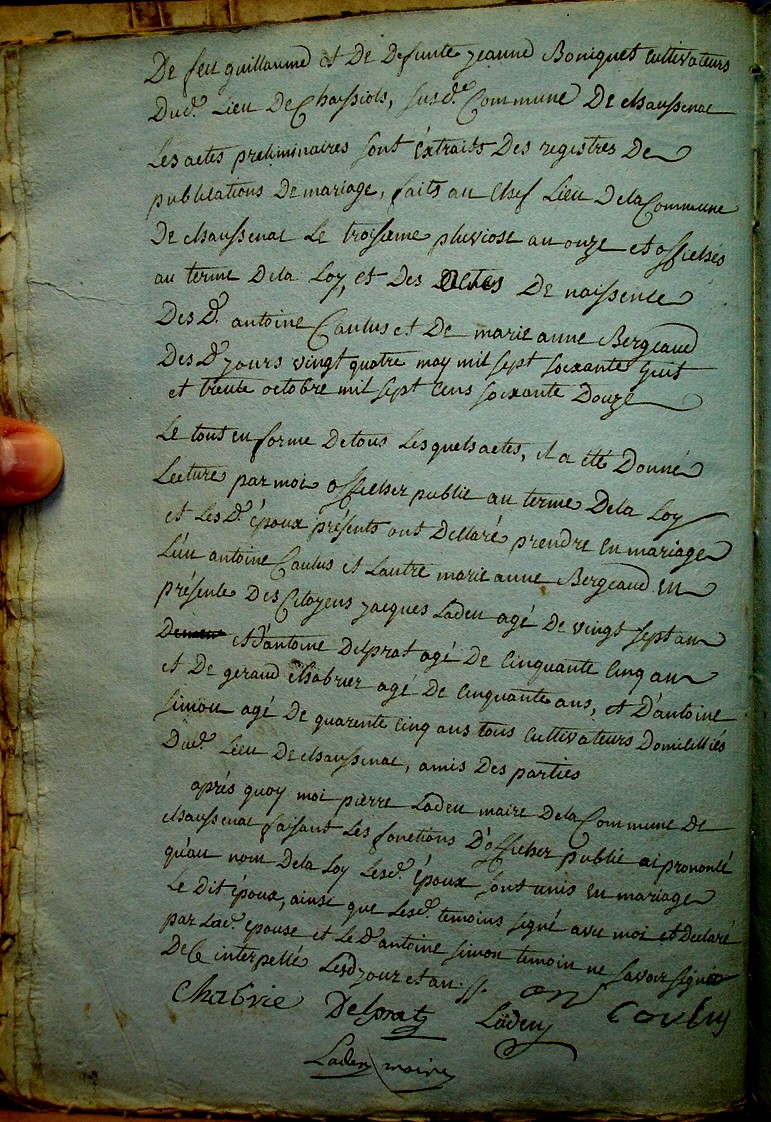 De feu guillaume et De Defunte jeanne Boniquet Cultivateurs
Dud.t Lieu De Chaussiols, susd.te Commune De chaussenac
Les actes preliminaires sont éxtraits Des registres De
publications De mariage, faits au Chef Lieu Dela Commune
De chaussenac Le troisieme pluviose an onze et affichés
au terme Dela Loy, et Des Actes De naissence
Des D.ts antoine Caulus et De marie anne Bergeaud
Des D.ts jours vingt quatre may mil sept soixante huit
et trente octobre mil sept Cens soixante Douze
Le tout en forme De tous Lesquels actes, il a été Donné
Lecture par moi officier public au terme Dela Loy
et Les D.ts époux présents ont Declaré prendre En mariage
L'un antoine Caulus et Lautre marie anne Bergeaud En
présence Des Citoyens jacques Laden agé De vingt sept an
et D'antoine Delprat agé De Cinquante Cinq an
et De geraud Chabrier agé De Cinquante ans, et D'antoine
simon agé De quarente Cinq ans tous Cultivateurs Domicilliés
Dud.t Lieu De chaussenac, amis Des parties
aprés quoy moi pierre Laden maire Dela Commune De
chaussenac faisant Les fonctions D'officier public ai prononcé
qu'au nom Dela Loy Lesd.ts époux sont unis En mariage
Le Dit époux, ainsi que Lesd.ts temoins signé avec moi et Declaré
par Lad.te epouse et Le D.t antoine simon temoin ne savoir signer
De Ce interpellé Lesd jour et an
Chabrie Delprat Laden Coulus
Laden maire